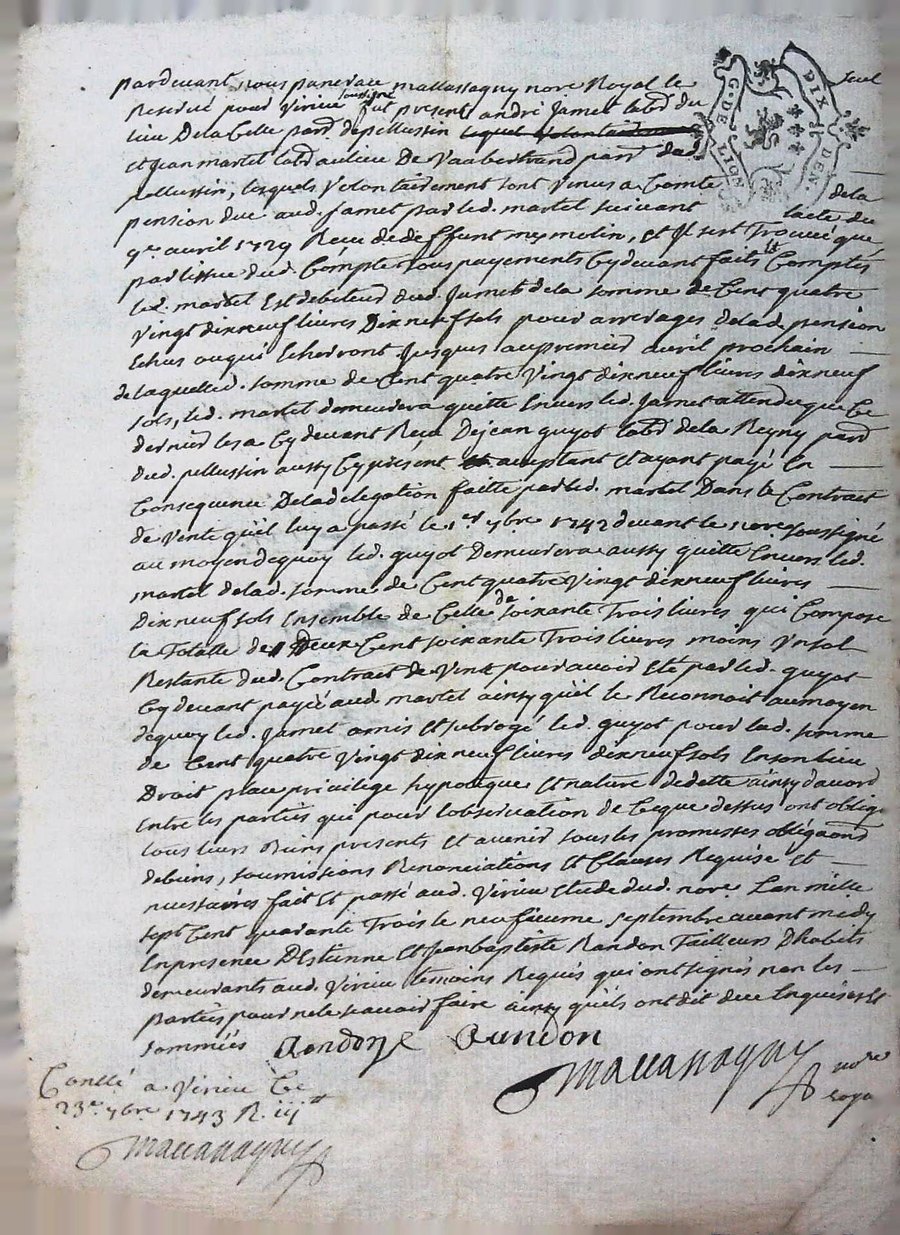 G. DE LION
DIX DEN.
pardevant nous pancrace mallassagny nore Royal le seul
Reservé pour Virieu soussigné fut present andré Jamet labr du
lieu De la Celle parr. de pellussin
et Jean martel labr au lieu De Vaubertrand parr dud
pellussin, lesquels volontairement sont venus a Compte de la
pension due aud. Jamet par led. martel suivant lacte du
9e avril 1729 Receu de deffunt me molin, et Il sest Trouvé que
par lissue dud. Compte tous payements Cy devant faits Comptés
led. martel Est debiteur dud. Jamet de la somme de Cent quatre
vingt dix neuf livres Dix neuf sols pour arrerages de lad. pension
Echus ou qui Echerront Jusques au premier avril prochain
de laquelle d. somme de Cent quatre Vingt dix neuf livres dix neuf
sols, led. martel demeurera quitte Envers led. Jamet attendu que Ce
dernier les a Cy devant Reçu De jean guyot labr de la Reyny parr
dud. pellussin aussy Cy present aceptant et ayant payé En
Consequence De la delegation faitte par led. martel Dans le Contract
de Vente quil luy a passé le 1er 7bre 1742 devant le nore soussigné
au moyen de quoy led. guyot Demeurera aussy quitte Envers led.
martel de lad. somme de Cent quatre Vingt dix neuf livres
Dix neuf sols Ensemble de Celle de soixante Trois livres qui Compose
la Totalle de Deux Cent soixante Trois livres moins Un sol
Restante dud. Contract de Vente pour avoir Eté par led. guyot
Cy devant payée aud. martel ainsy quil le Reconnoit au moyen
de quoy led. Jamet a mis et subrogé led. guyot pour lad. somme
de Cent quatre Vingt dix neuf livres dix neuf sols En son lieu
Droit place privilege hypoteque Et nature de dette ainsy d'acord
Entre les parties qui pour l'observation de Ce que dessus ont obligé
tous leurs Biens presents et avenir sous les promesses obligaons
de biens, soumissions Renonciations et Clauses Requise et
necessaires fait Et passé aud. Virieu Etude dud. nore Lan mille
sept Cent quarante Trois le neufvieme septembre avant midy
En presence D'Estienne et Jean baptiste Randon Tailleurs D'habits
demeurants aud. Virieu temoins Requis qui ont signés non les
parties pour ne le scavoir faire ainsy quils ont dit due Enquises et
sommées Randon Randon
mallassagny nore
royal
Conllé a Virieu Ce
23e 7bre 1743 R. iij
mallassagny